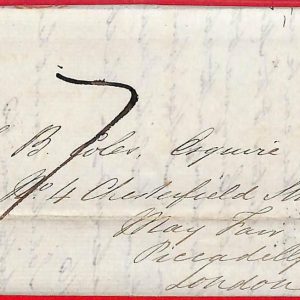 7
B. Coles, Esquire
No. 4 Chesterfield
May Fair
Piccadilly
London